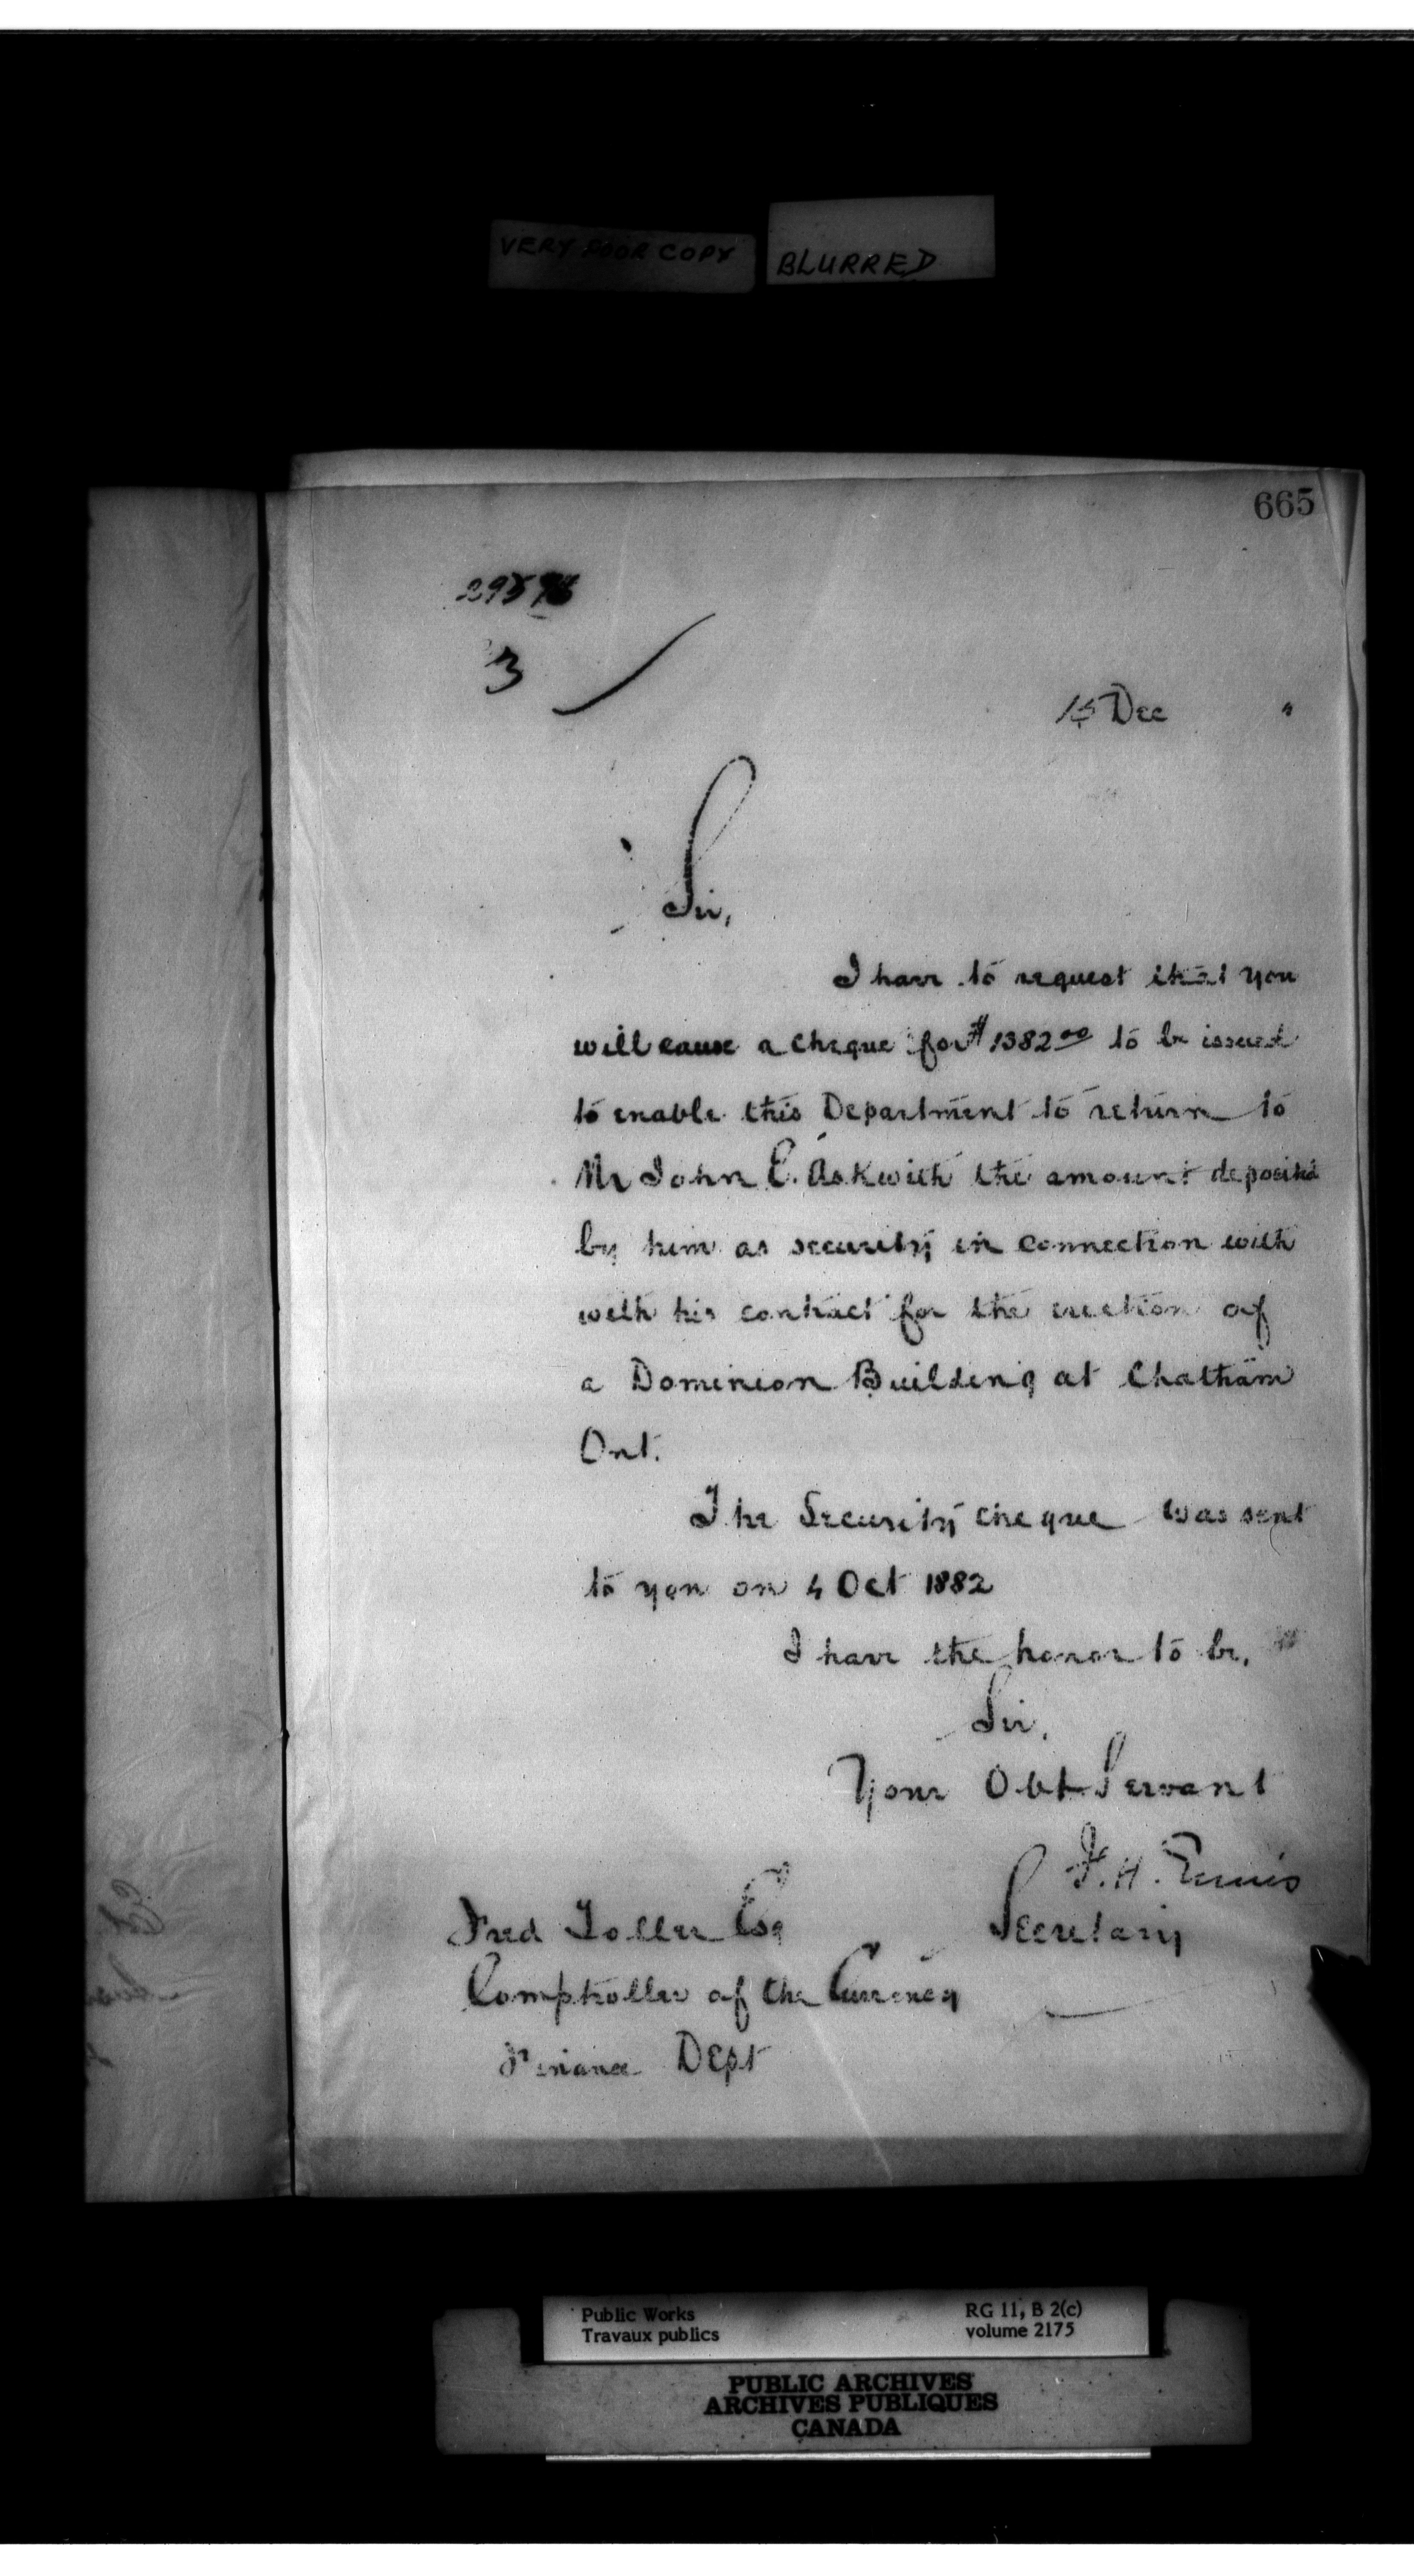 VERY POOR COPY
BLURRED
665
3
15 Dec "
Sir,
I have to request that you
will cause a cheque for $1382.00 to be issued
to enable this Department to return to
Mr John E. Askwith the amount deposited
by him as security in connection with
with his contract for the erection of
a Dominion Building at Chatham
Ont.
The Security cheque was sent
to you on 4 Oct 1882
I have the honor to be,
Sir,
Your Obt Servant
F. H. Ennis
Secretary
Fred Toller Esq
Comptroller of the Currency
Finance Dept
Public Works
Travaux publics
RG 11, B 2(c)
volume 2175
PUBLIC ARCHIVES
ARCHIVES PUBLIQUES
CANADA